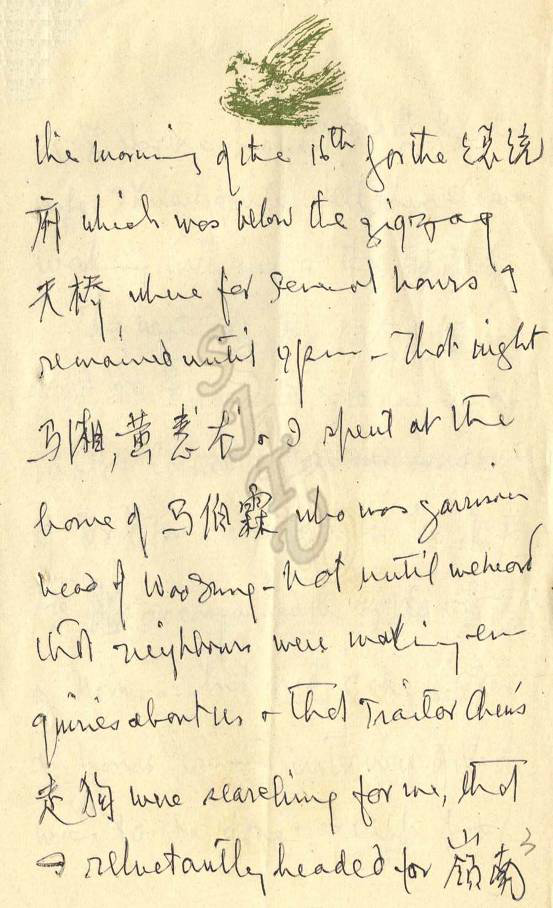 the morning of the 16th for the 總統
府 which was below the zigzag
天橋, where for several hours I
remained until 9 pm – That night
马湘, 黄惠龙 & I spent at the
home of 马伯霖 who was garrison
head of Woosung – Not until we heard
that neighbours were making en
quiries about us & that Traitor Chen's
走狗 were searching for me, that
I reluctantly headed for 嶺南
3
SJTU